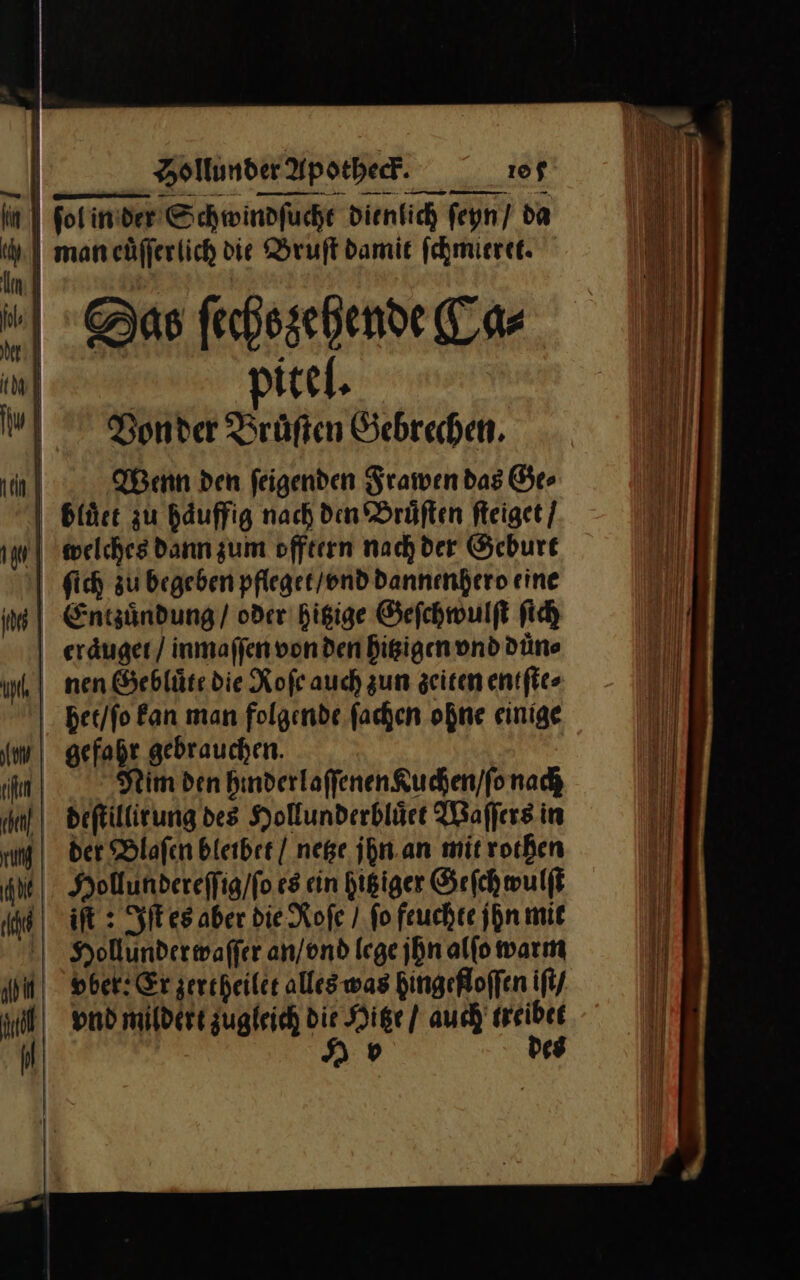 Hollunder Apotheck. 105
ſol in der Schwindſucht dienlich ſeyn / da
man eüſſerlich die Bruſt damit ſchmieret.
Das ſechszehende Ca⸗
pitel.
Von der Brüſten Gebrechen.
Wenn den ſeigenden Frawen das Ge⸗
blüet zu häuffig nach den Brüſten ſteiget /
welches dann zum offtern nach der Geburt
ſich zu begeben pfleget / vnd dannenhero eine
Entzündung / oder hitzige Geſchwulſt ſich
eräuget / inmaſſen von den hitzigen vnd dün⸗
nen Geblüte die Roſe auch zun zeiten entſte⸗
het / ſo kan man folgende ſachen ohne einige
gefahr gebrauchen.
Nim den hinderlaſſenen Kuchen / ſo nach
deſtillirung des Hollunderblüet Waſſers in
der Blaſen bleibet / netze jhn an mit rothen
Hollundereſſig / ſo es ein hitziger Geſchwulſt
iſt : Iſt es aber die Roſe / ſo feuchte jhn mit
Hollunderwaſſer an / vnd lege jhn alſo warm
vber: Er zertheilet alles was hingefloſſen iſt /
vnd mildert zugleich die Hitze / auch treibet
H v des